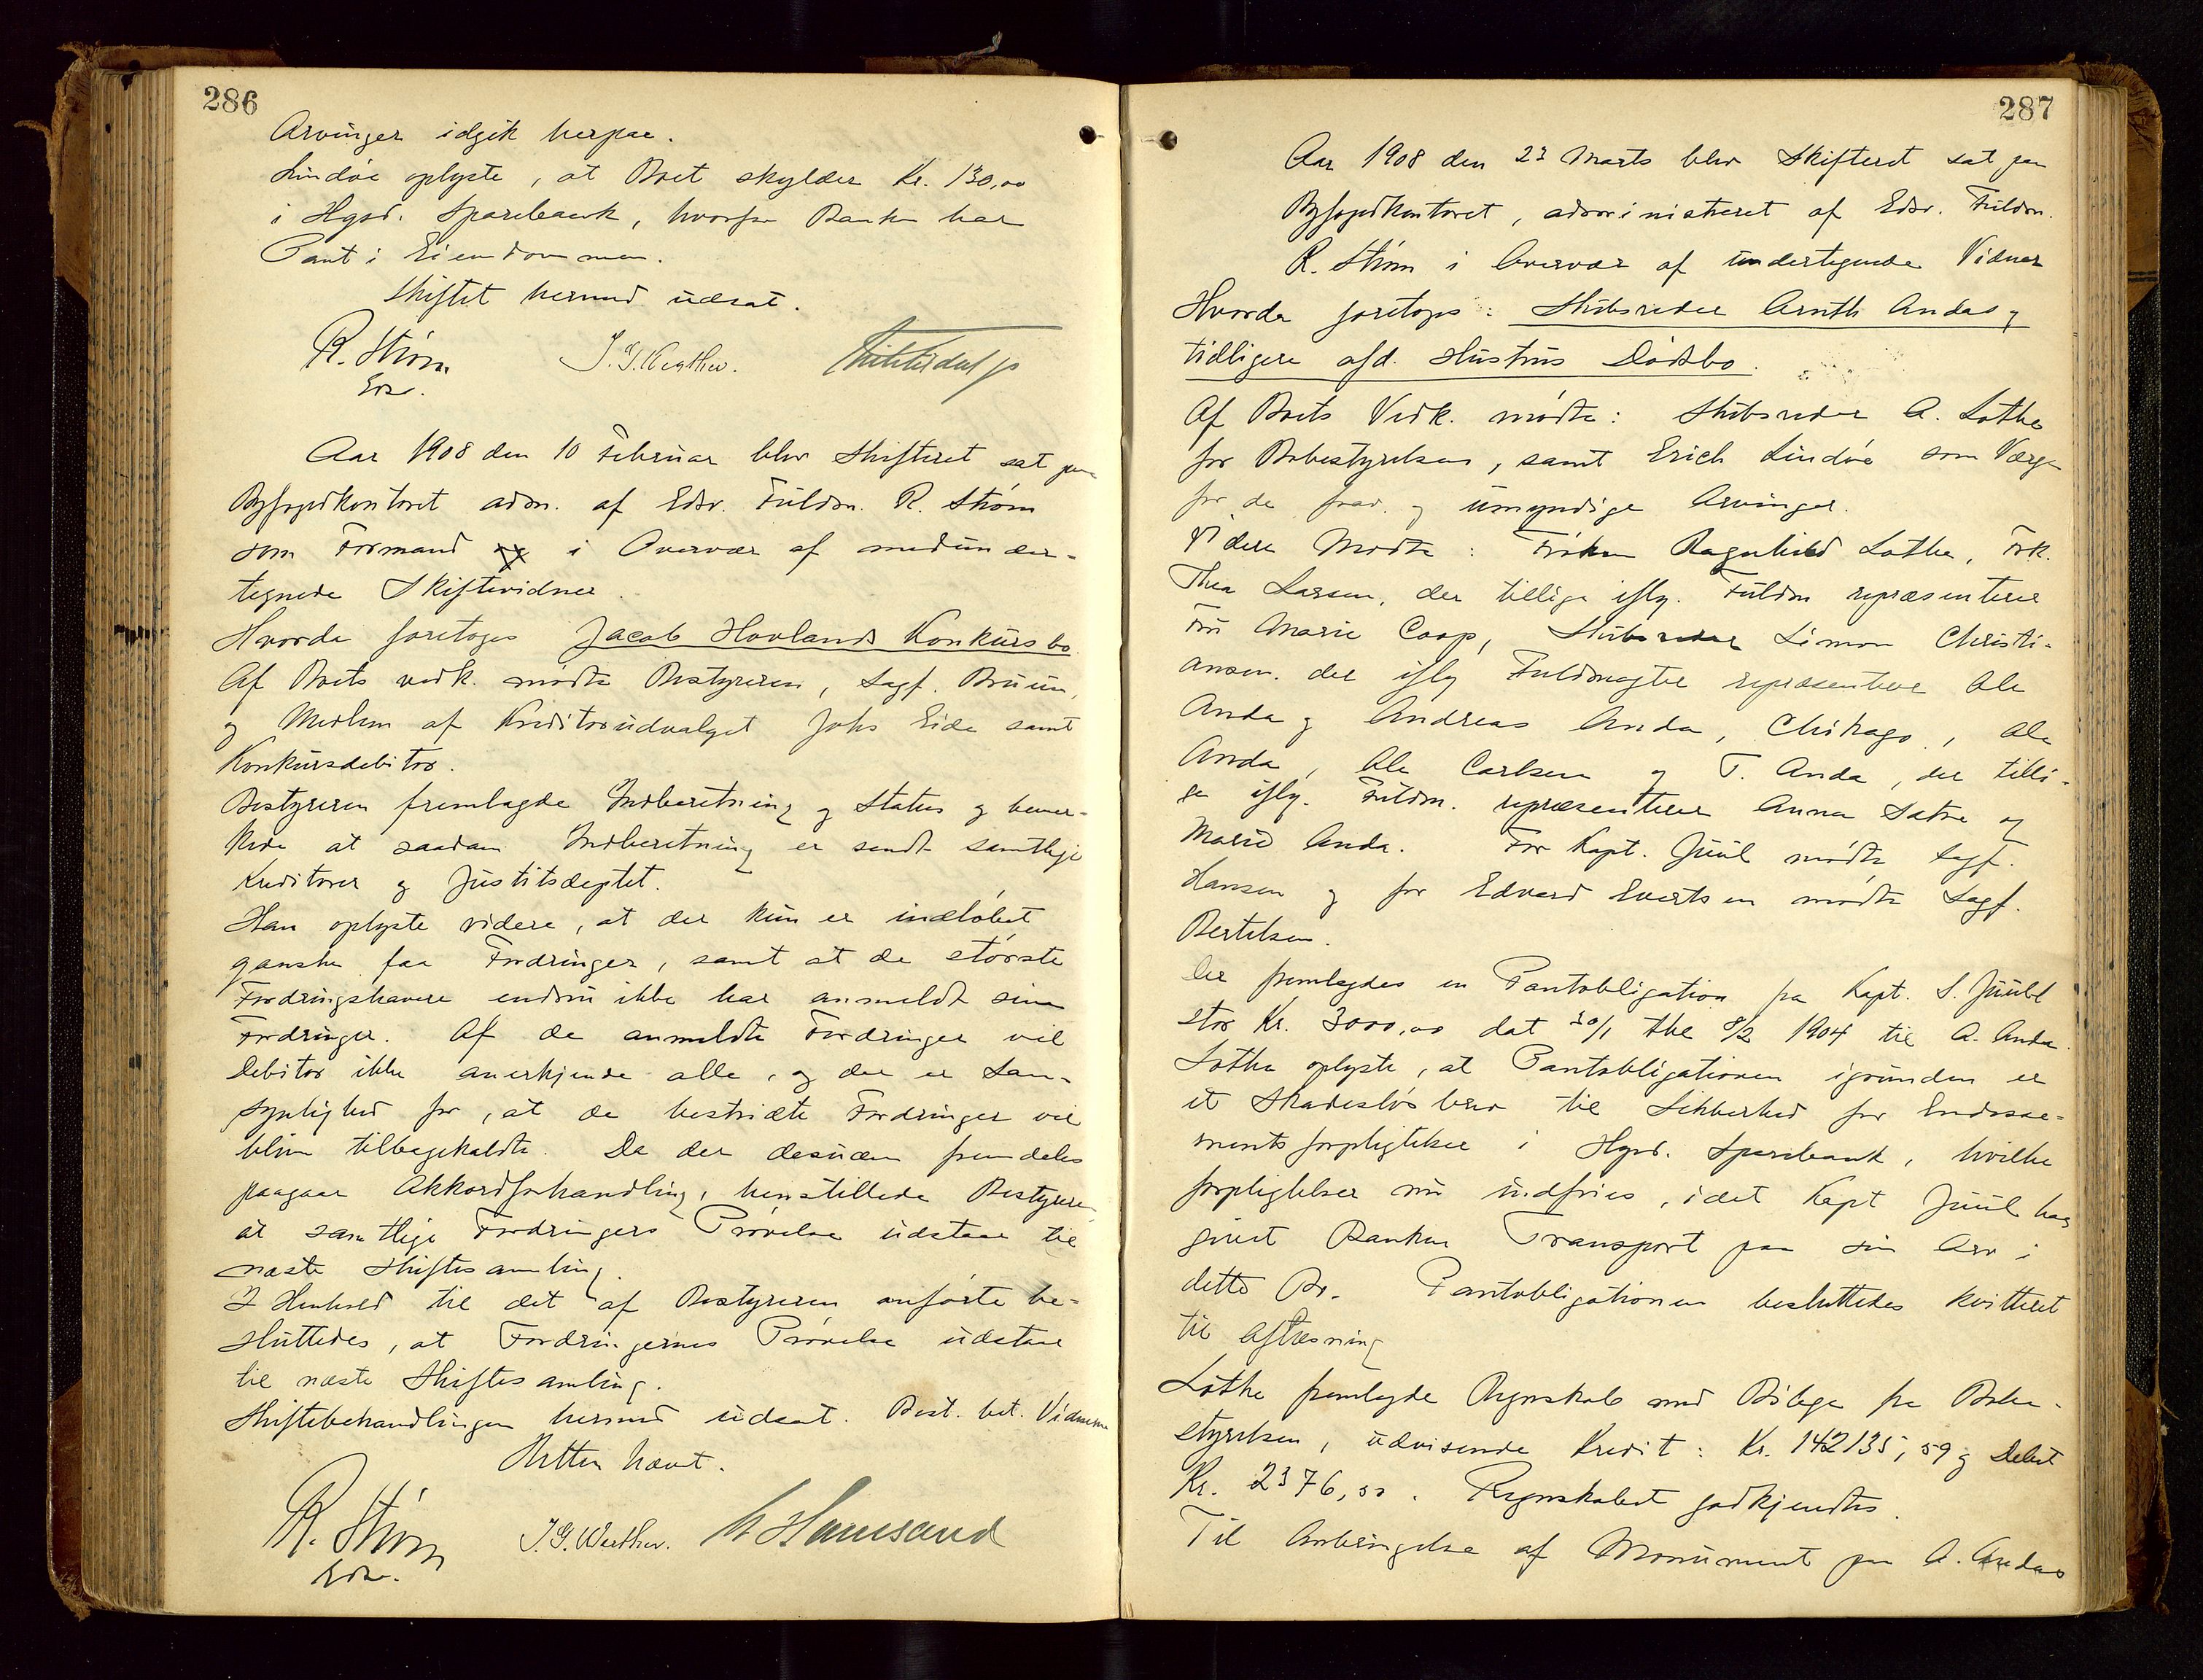 286
Arvinger idgik herpaa.
Lindøe oplyste, at Boet skylder Kr. 130,00
i Hgsd. Sparebank, hvorfor Banken har
Pant i Eiendommen.
Skiftet hermed udsat.
R. Strøm J. G. Werther.
Edsv.
Aar 1908 den 10 Februar blev Skifteret sat paa
Byfogedkontoret adm. af Edsv. Fuldm. R. Strøm
som Formand i Overvær af medunder-
tegnede Skiftevidner.
Hvorda foretoges Jacob Hovlands Konkursbo.
Af Boets vedk. mødte Bestyreren, Sagf. Bruun,
og Medlem af Kreditorudvalget Johs Eide samt
Konkursdebitor.
Bestyreren fremlagde Indberetning og Status og bemer-
kede at saadan Indberetning er sendt samtlige
Kreditorer og Justitsdeptet.
Han oplyste videre, at der kun er indløbet
ganske faa Fordringer, samt at de største
Fordringshavere endnu ikke har anmeldt sine
Fordringer. Af de anmeldte Fordringer vil
Debitor ikke anerkjende alle, og der er San-
synlighed for, at de bestridte Fordringer vil
blive tilbagekaldte. Da der desuden fremdeles
paagaar Akkordforhandling, henstillede Bestyreren
at samtlige Fordringers Prøvelse udstaar til
næste Skiftesamling.
I Henhold til det af Bestyreren anførte be-
sluttedes, at Fordringernes Prøvelse udstaar
til næste Skiftesamling.
Skiftebehandlingen hermed udsat. Best. bet. Vidnerne
Retten hævet.
R. Strøm J. G. Werther. Hamsand
Edsv.
287
Aar 1908 den 23 Marts blev Skifteret sat paa
Byfogedkontoret, administreret af Edsv. Fuldm.
R. Strøm i Overvær af undertegnede Vidner
Hvorda foretoges: Skibsreder Arnth Andas og
tidligere afd. Hustrus Dødsbo.
Af Boets Vedk. mødte: Skibsreder A. Lothe
for Bobestyrelsen, samt Erich Lindøe som Værge
for de frav. og umyndige Arvinger.
Videre Mødte: Frøken Ragnhild Lothe, Frk.
Thea Larsen, der tillige iflg. Fuldm repræsenterer
Fru Marie Coop, Skibsreder Simon Christi-
ansen. der iflg Fuldmagter repræsenterer Ole
Anda og Andreas Anda, Chikago, Ole
Anda, Ole Carlsen og T. Anda, der tilli-
ge iflg. Fuldm. repræsenterer Anna Satve og
Marie Anda. For Kapt. Juul mødte Sagf.
Hansen og for Edvard Evertsen mødte Sagf.
Bertelsen.
Der fremlagdes en Pantobligation fra Kapt. S. Juul
stor Kr. 3000,00 dat 30/1 thl 8/2 1904 til A. Anda.
Lothe oplyste, at Pantobligationen igrunden er
et Skadesløsbrev til Sikkerhed for Endosse-
mentsforpligtelser i Hgsd. Sparebank, hvilke
forpligtelser nu indfries, idet Kapt Juul har
givet Banken Transport paa sin Arv i
dette Bo. Pantobligationen besluttedes kvitteret
til Aflæsning
Lothe fremlagde Regnskab med Bilage fra Bobe-
styrelsen, udvisende Kredit: Kr. 142135,59 og Debet
Kr. 2376,50. Regnskabet godkjendtes.
Til Anbringelse af Monument paa A. Andas